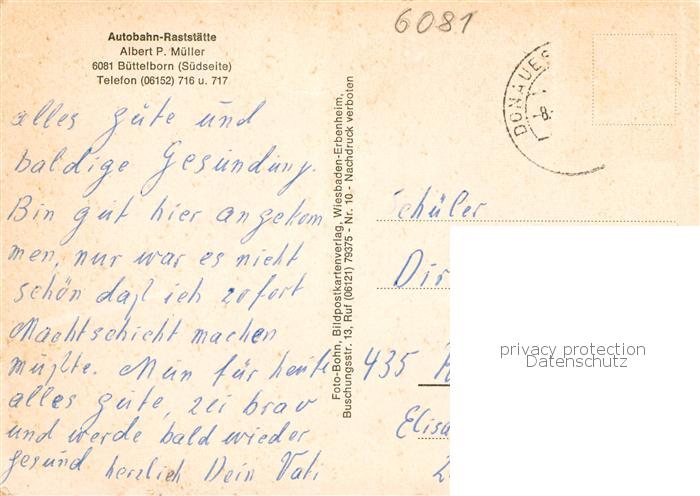 6081
Autobahn-Raststätte
Albert P. Müller
6081 Büttelborn (Südseite)
Telefon (06152) 716 u. 717
DONAUES
-8.
alles gute und
baldige Gesundung.
Bin gut hier angekom
men, nur war es nicht
schön daß ich sofort
Nachtschicht machen
müßte. Nun für heute
alles gute, sei brav
und werde bald wieder
gesund herzlich Dein Vati
Foto-Bohn, Bildpostkartenverlag, Wiesbaden-Erbenheim,
Buschungsstr. 13, Ruf (06121) 79375 - Nr. 10 - Nachdruck verboten
Schüler
Dir
435
Elisa
2
privacy protection
Datenschutz